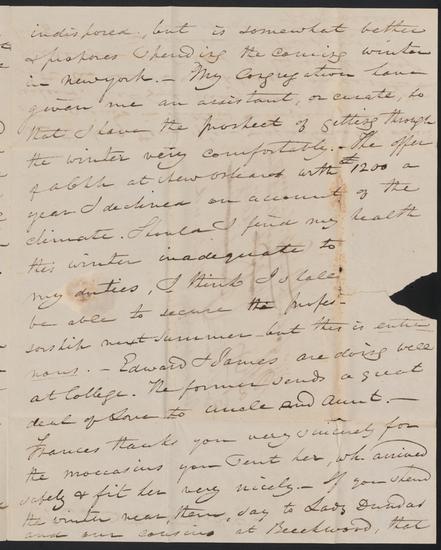 indisposed, but is somewhat better
& proposes spending the coming winter
in Newyork. – My Congregation have
given me an assistant, or curate, so
that I have the prospect of getting through
the winter very comfortably. – The offer
at New Orleans with $1200 a
year I declined on account of the
climate. Should I find my health
this winter inadequate to
my duties, I think I shall
be able to secure the profes-
sorship next summer but this is entre
nous. – Edward & James are doing well
at College. The former sends a great
deal of Love to uncle and aunt. –
Frances thanks you very sincerely for
the moccasins you sent her, wh. arrived
safely & fit her very nicely. – If you spend
the winter near them, say to Lady Dundas
and our cousins at Beechwood, that